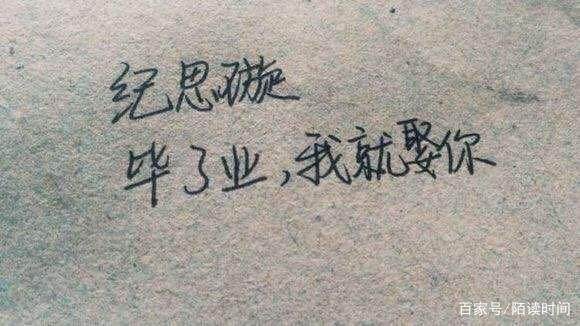 纪思璇
毕了业,我就娶你
百家号/陌读时间